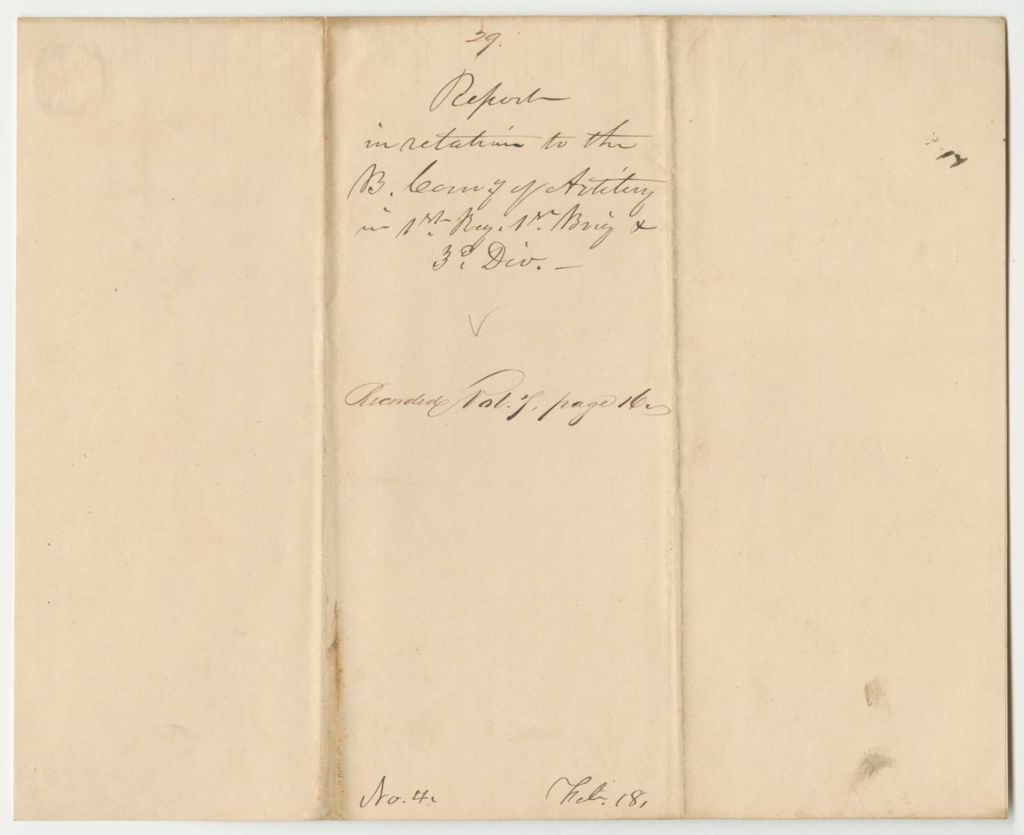 29.
Report
in relation to the
B. Comy of Artillery
in 1st Reg. 1st Brig &
3d Div. —
Recorded Vol. 7, page 16
No. 4.
Feb. 18,